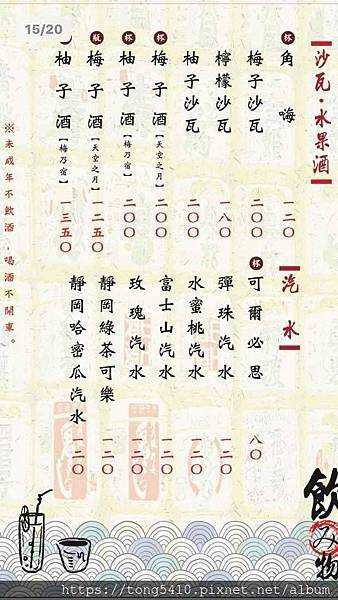 15/20
沙瓦・水果酒
杯 角嗨 一二〇
梅子沙瓦 二〇〇
檸檬沙瓦 一八〇
柚子沙瓦 二〇〇
杯 梅子酒【天空之月】 二〇〇
杯 柚子酒【梅乃宿】 二〇〇
瓶 梅子酒【天空之月】 一二五〇
柚子酒【梅乃宿】 一三五〇
汽水
杯 可爾必思 八〇
彈珠汽水 一二〇
水蜜桃汽水 一二〇
富士山汽水 一二〇
玫瑰汽水 一二〇
靜岡綠茶可樂 一二〇
靜岡哈密瓜汽水 一二〇
※未成年不飲酒，喝酒不開車。
飲み物
https://tong5410.pixnet.net/album